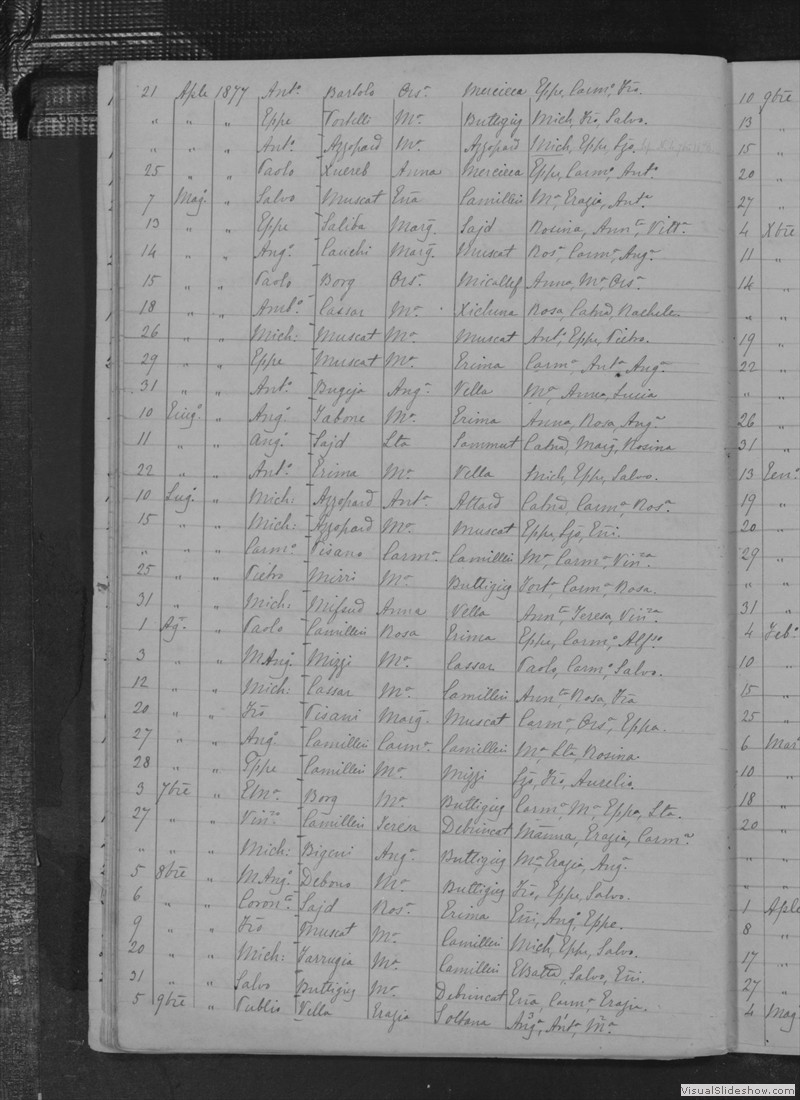 21 Aple 1877 Antº Bartolo Orsª Mercieca Eppe, Carmº, Frº.
" " " Eppe Portelli Mª Buttigieg Mich, Frº, Salvº.
" " " Antº Azzopard Mª Azzopard Mich, Eppe, Ljs,
25 " " Paolo Xuereb Anna Mercieca Eppe, Carmº, Antº
7 Magº " Salvº Muscat Eña Camilleri Mª, Grazia, Antª
13 " " Eppe Saliba Margª Sajd Rosina, Annª, Vittª
14 " " Angº Cauchi Margª Muscat Rosª, Carmª, Angª
15 " " Paolo Borg Orsª Micallef Anna, Mª, Orsª
18 " " Antº Cassar Mª Xicluna Rosa, Catnª, Rachele.
26 " " Mich: Muscat Mª Muscat Antº, Eppe, Pietro.
29 " " Eppe Muscat Mª Grima Carmª, Antª, Angª
31 " " Antº Bugeja Angª Vella Mª, Anna, Lucia
10 Giugº " Angº Tabone Mª Grima Anna, Rosa, Angª
11 " " Angº Sajd Lta Sammut Catnª, Margª, Rosina
22 " " Antº Grima Mª Vella Mich, Eppe, Salvº.
10 Lugº " Mich: Azzopard Antª Attard Catnª, Carmª, Rosª
15 " " Mich: Azzopard Mª Muscat Eppe, Ljs, Eñi.
" " " Carmº Pisano Carmª Camilleri Mª, Carmª, Vinzª
25 " " Pietro Mizzi Mª Buttigieg Fortª, Carmª, Rosa.
31 " " Mich: Mifsud Anna Vella Annª, Teresa, Vinzª
1 Agº " Paolo Camilleri Rosa Grima Eppe, Carmº, Alfsº
3 " " MAngº Mizzi Mª Cassar Paolo, Carmº, Salvº.
12 " " Mich: Cassar Mª Camilleri Annª, Rosa, Frª
20 " " Frº Pisani Margª Muscat Carmª, Orsª, Eppa.
27 " " Angº Camilleri Carmª Camilleri Mª, Lta, Rosina
28 " " Eppe Camilleri Mª Mizzi Ljs, Frº, Aurelio
3 7bre " Borg Mª Buttigieg Carmª, Mª, Eppa, Lta.
27 " " Vinzº Camilleri Teresa Debrincat Mañna, Grazia, Carmª
" " " Mich: Bigeni Angª Buttigieg Mª, Grazia, Angª
5 8bre " MAngº Debono Mª Buttigieg Frº, Eppe, Salvº.
6 " " Coronª Sajd Rosª Grima Eñi, Angº, Eppe.
9 " " Frº Muscat Mª Camilleri Mich, Eppe, Salvº.
20 " " Mich: Farrugia Mª Camilleri GBatta, Salvº, Eñi.
31 " " Salvº Buttigieg Mª Debrincat Eña, Carmª, Grazia.
5 9bre " Publio Vella Grazia Soltana Angª, Antª, Mª
10 9bre
13 "
15 "
20 "
27 "
4 Xbre
11 "
14 "
" "
19 "
22 "
" "
26 "
31 "
13 Genº
19 "
20 "
29 "
" "
31 "
4 Febº
10 "
15 "
25 "
6 Marº
10 "
18 "
20 "
" "
" "
1 Aple
8 "
17 "
27 "
4 Magº
VisualSlideshow.com